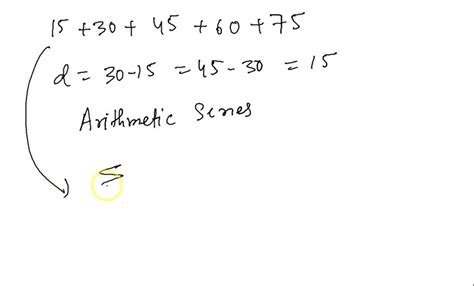 15 + 30 + 45 + 60 + 75
d = 30 - 15 = 45 - 30 = 15
Arithmetic Series